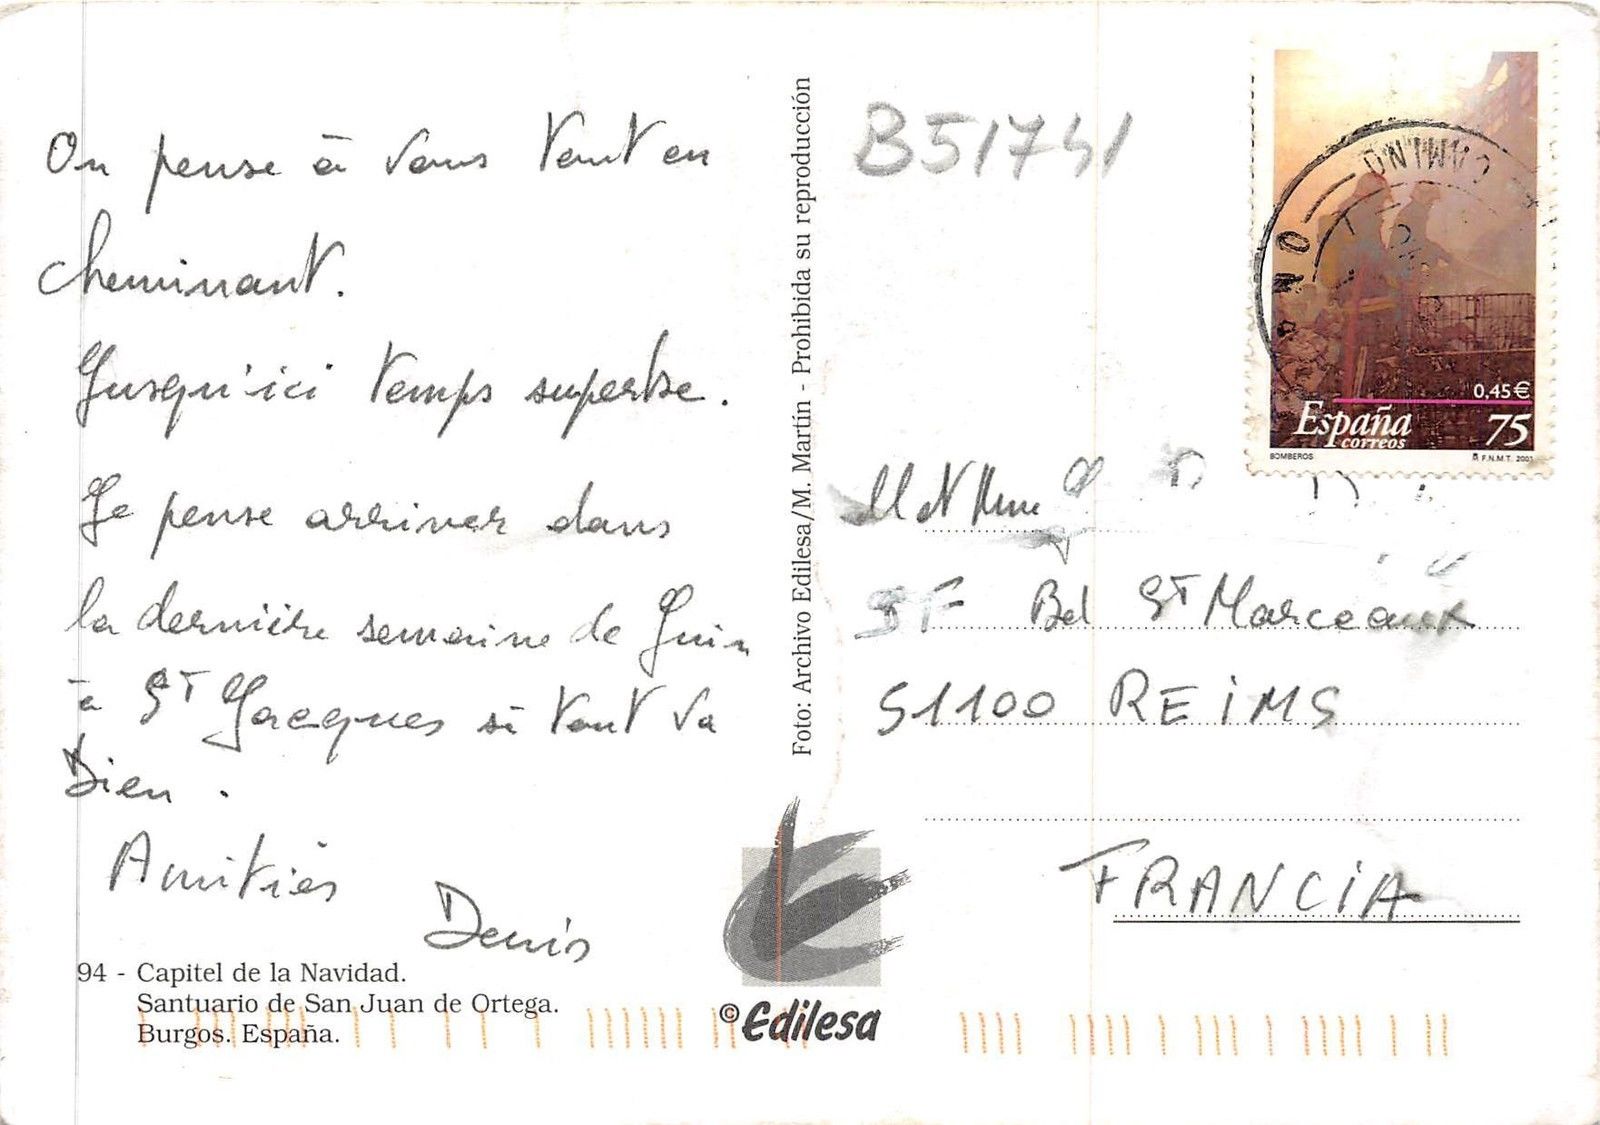 On pense à vous tout en
cheminant.
Jusqu'ici temps superbe.
Je pense arriver dans
la dernière semaine de Juin
à ST Jacques si tout va
Bien.
Amitiés
Denis
94 - Capitel de la Navidad.
Santuario de San Juan de Ortega.
Burgos. España.
Foto: Archivo Edilesa/M. Martín - Prohibida su reproducción
©Edilesa
B51741
0,45€
España
correos
75
BOMBEROS
F.N.M.T. 2001
CAMINO
M et Mme
Bd ST Marceaux
51100 REIMS
FRANCIA